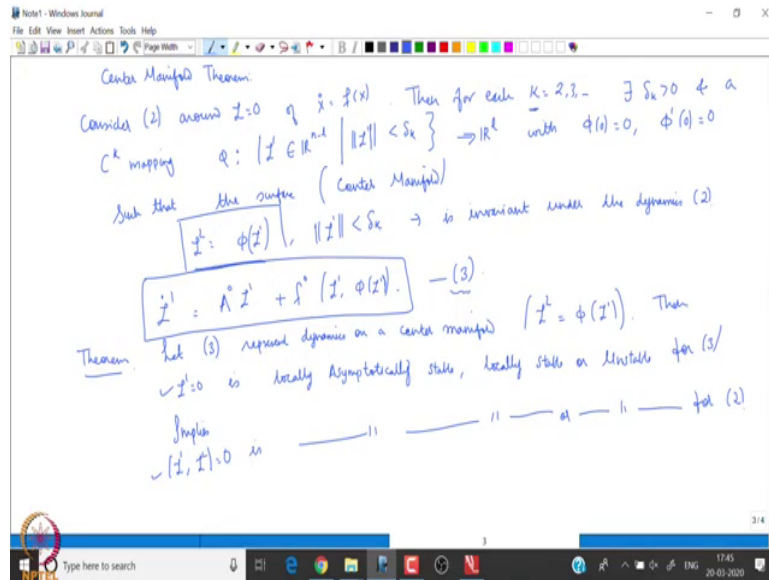 Note1 - Windows Journal
File Edit View Insert Actions Tools Help
Page Width
Center Manifold Theorem.
Consider (2) around z=0 of ẋ = f(x). Then for each K=2,3,- ∃ δₖ>0 & a
Cᵏ mapping φ: {z¹ ∈ ℝⁿ⁻ˡ | ||z¹|| < δₖ} → ℝˡ with φ(0)=0, φ'(0)=0
Such that the surface (Center Manifold)
z² = φ(z¹), ||z¹|| < δₖ → is invariant under the dynamics (2)
ż¹ = Λ⁰ z¹ + f⁰ (z¹, φ(z¹)). — (3)
Theorem. Let (3) represent dynamics on a center manifold (z² = φ(z¹)). Then
✓ z¹=0 is locally Asymptotically stable, locally stable or Unstable for (3)
Implies
✓ (z¹, z²)=0 is —— 〃 —— 〃 —— or — 〃 —— for (2)
3/4
3
NPTEL
Type here to search
ENG
17:45
20-03-2020